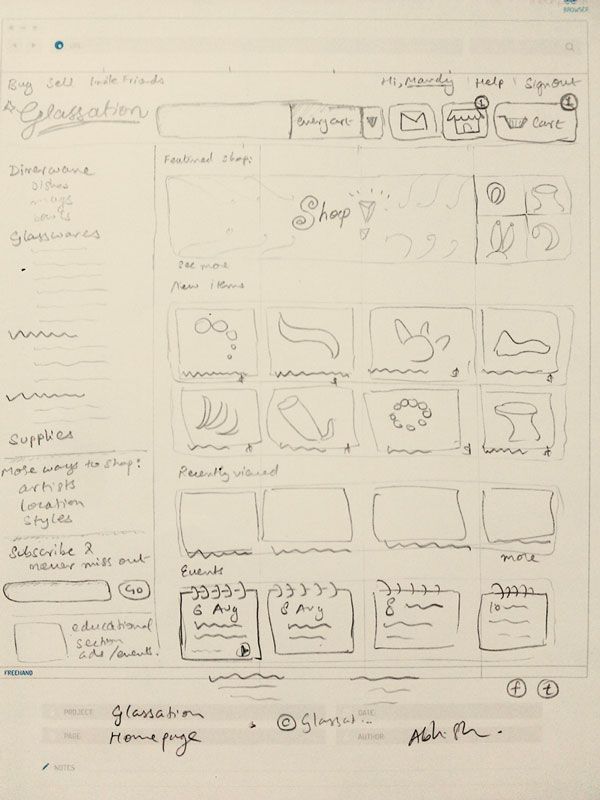 BROWSER
Buy Sell Invite Friends
Hi, Mandy Help Signout
Glassation
everyart
1
Cart
1
Dinerware
Dishes
mugs
bowls
Glasswares
Supplies
More ways to shop:
artists
location
styles
Subscribe &
never miss out
GO
educational
section
ads/events.
Featured shop:
Shop
See more
New items
$ $ $ $
$ $ $ $
Recently viewed
more
Events
6 Aug
8 Aug
8
10
FREEHAND
f t
PROJECT: Glassation
DATE:
PAGE: Homepage
© Glassat...
AUTHOR:
NOTES